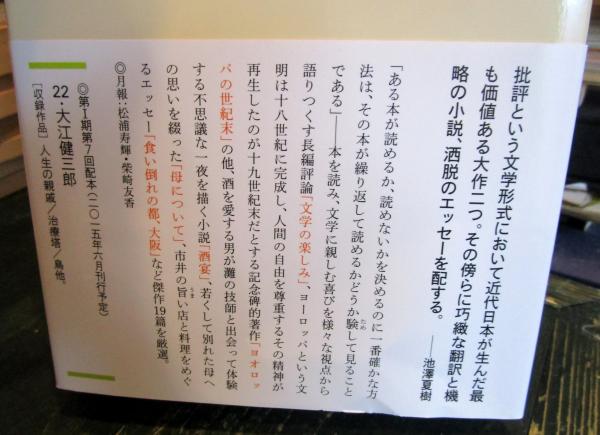 批評という文学形式において近代日本が生んだ最
も価値ある大作二つ。その傍らに巧緻な翻訳と機
略の小説、洒脱のエッセーを配する。
——池澤夏樹
「ある本が読めるか、読めないかを決めるのに一番確かな方
法は、その本が繰り返して読めるかどうか験して見ること
である」——本を読み、文学に親しむ喜びを様々な視点から
語りつくす長編評論「文学の楽しみ」、ヨーロッパという文
明は十八世紀に完成し、人間の自由を尊重するその精神が
再生したのが十九世紀末だとする記念碑的著作「ヨオロッ
パの世紀末」の他、酒を愛する男が灘の技師と出会って体験
する不思議な一夜を描く小説「酒宴」、若くして別れた母へ
の思いを綴った「母について」、市井の旨い店と料理をめぐ
るエッセー「食い倒れの都、大阪」など傑作19篇を厳選。
◎月報:松浦寿輝・柴崎友香
◎第Ⅰ期第7回配本(二〇一五年六月刊行予定)
22・大江健三郎
[収録作品] 人生の親戚/治療塔/鳥他。